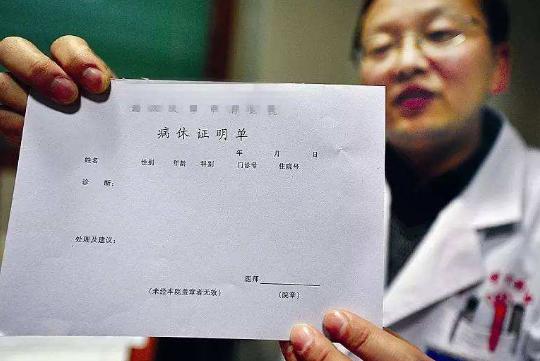 病休证明单
年 月 日
姓名 性别 年龄 科别 门诊号 住院号
诊 断：
处理及建议：
医师
（未经本院盖章者无效） （院章）